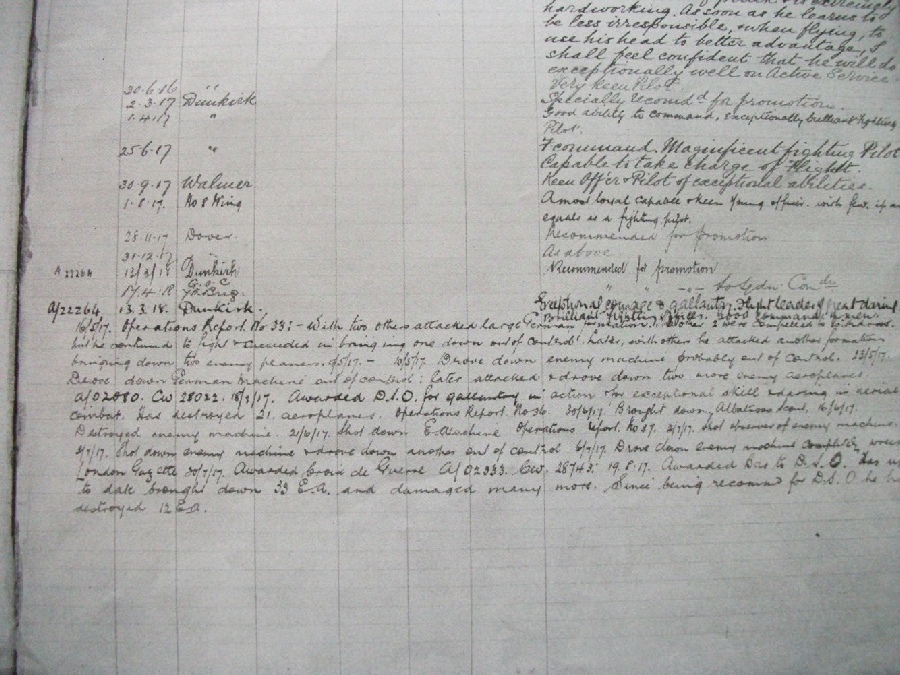 hardworking. As soon as he learns to
be less irresponsible, when flying, to
use his head to better advantage, I
shall feel confident that he will do
exceptionally well on Active Service
Very keen Pilot.
20.6.16 "
2.3.17 Dunkirk Specially recomd for promotion.
1.4.17 " Good ability to command, exceptionally brilliant fighting
Pilot.
25.6.17 " F command. Magnificent fighting Pilot
Capable to take charge of Flight.
30.9.17 Walmer Keen Offer & Pilot of exceptional abilities.
1.8.17. No 8 Wing A most loyal capable & keen young officer. with few, if any
equals as a fighting pilot.
28.11.17 Dover. Recommended for promotion
31.12.17 " As above
A 22264 12/3/18 Dunkirk Recommended for promotion
17.4.18 " " to Sqdn Comdr
A/22264 13.3.18. Dunkirk. Exceptional courage & gallantry. Flight leader of great daring
Brilliant fighting Officer. Good command of men.
Operations Report. No 33:- With two others attacked large German formation, other 2 were compelled to withdraw.
but he continued to fight & succeeded in bringing one down out of control. Later, with other he attacked another formation
bringing down two enemy planes. Drove down enemy machine probably out of control. 23/5/17.
Drove down German machine out of control: later attacked & drove down two more enemy aeroplanes.
A/02080. CW 28022. Awarded D.S.O. for gallantry in action & for exceptional skill & daring in aerial
combat. Has destroyed 21 aeroplanes. Operations Report. No 36. Brought down Albatross Scout. 16/6/17.
Destroyed enemy machine. 21/6/17. Shot down E. Machine Operations Report. No 37. 2/7/17. Shot observer of enemy machine.
Shot down enemy machine & drove down another out of control 6/7/17. Drove down enemy machine completely
London Gazette 20/7/17. Awarded Croix de Guerre A/02333. CW. 28743. 19.8.17. Awarded Bar to D.S.O. Has up
to date brought down 33 E.A. and damaged many more. Since being recomm for D.S.O. he has
destroyed 12 E.A.